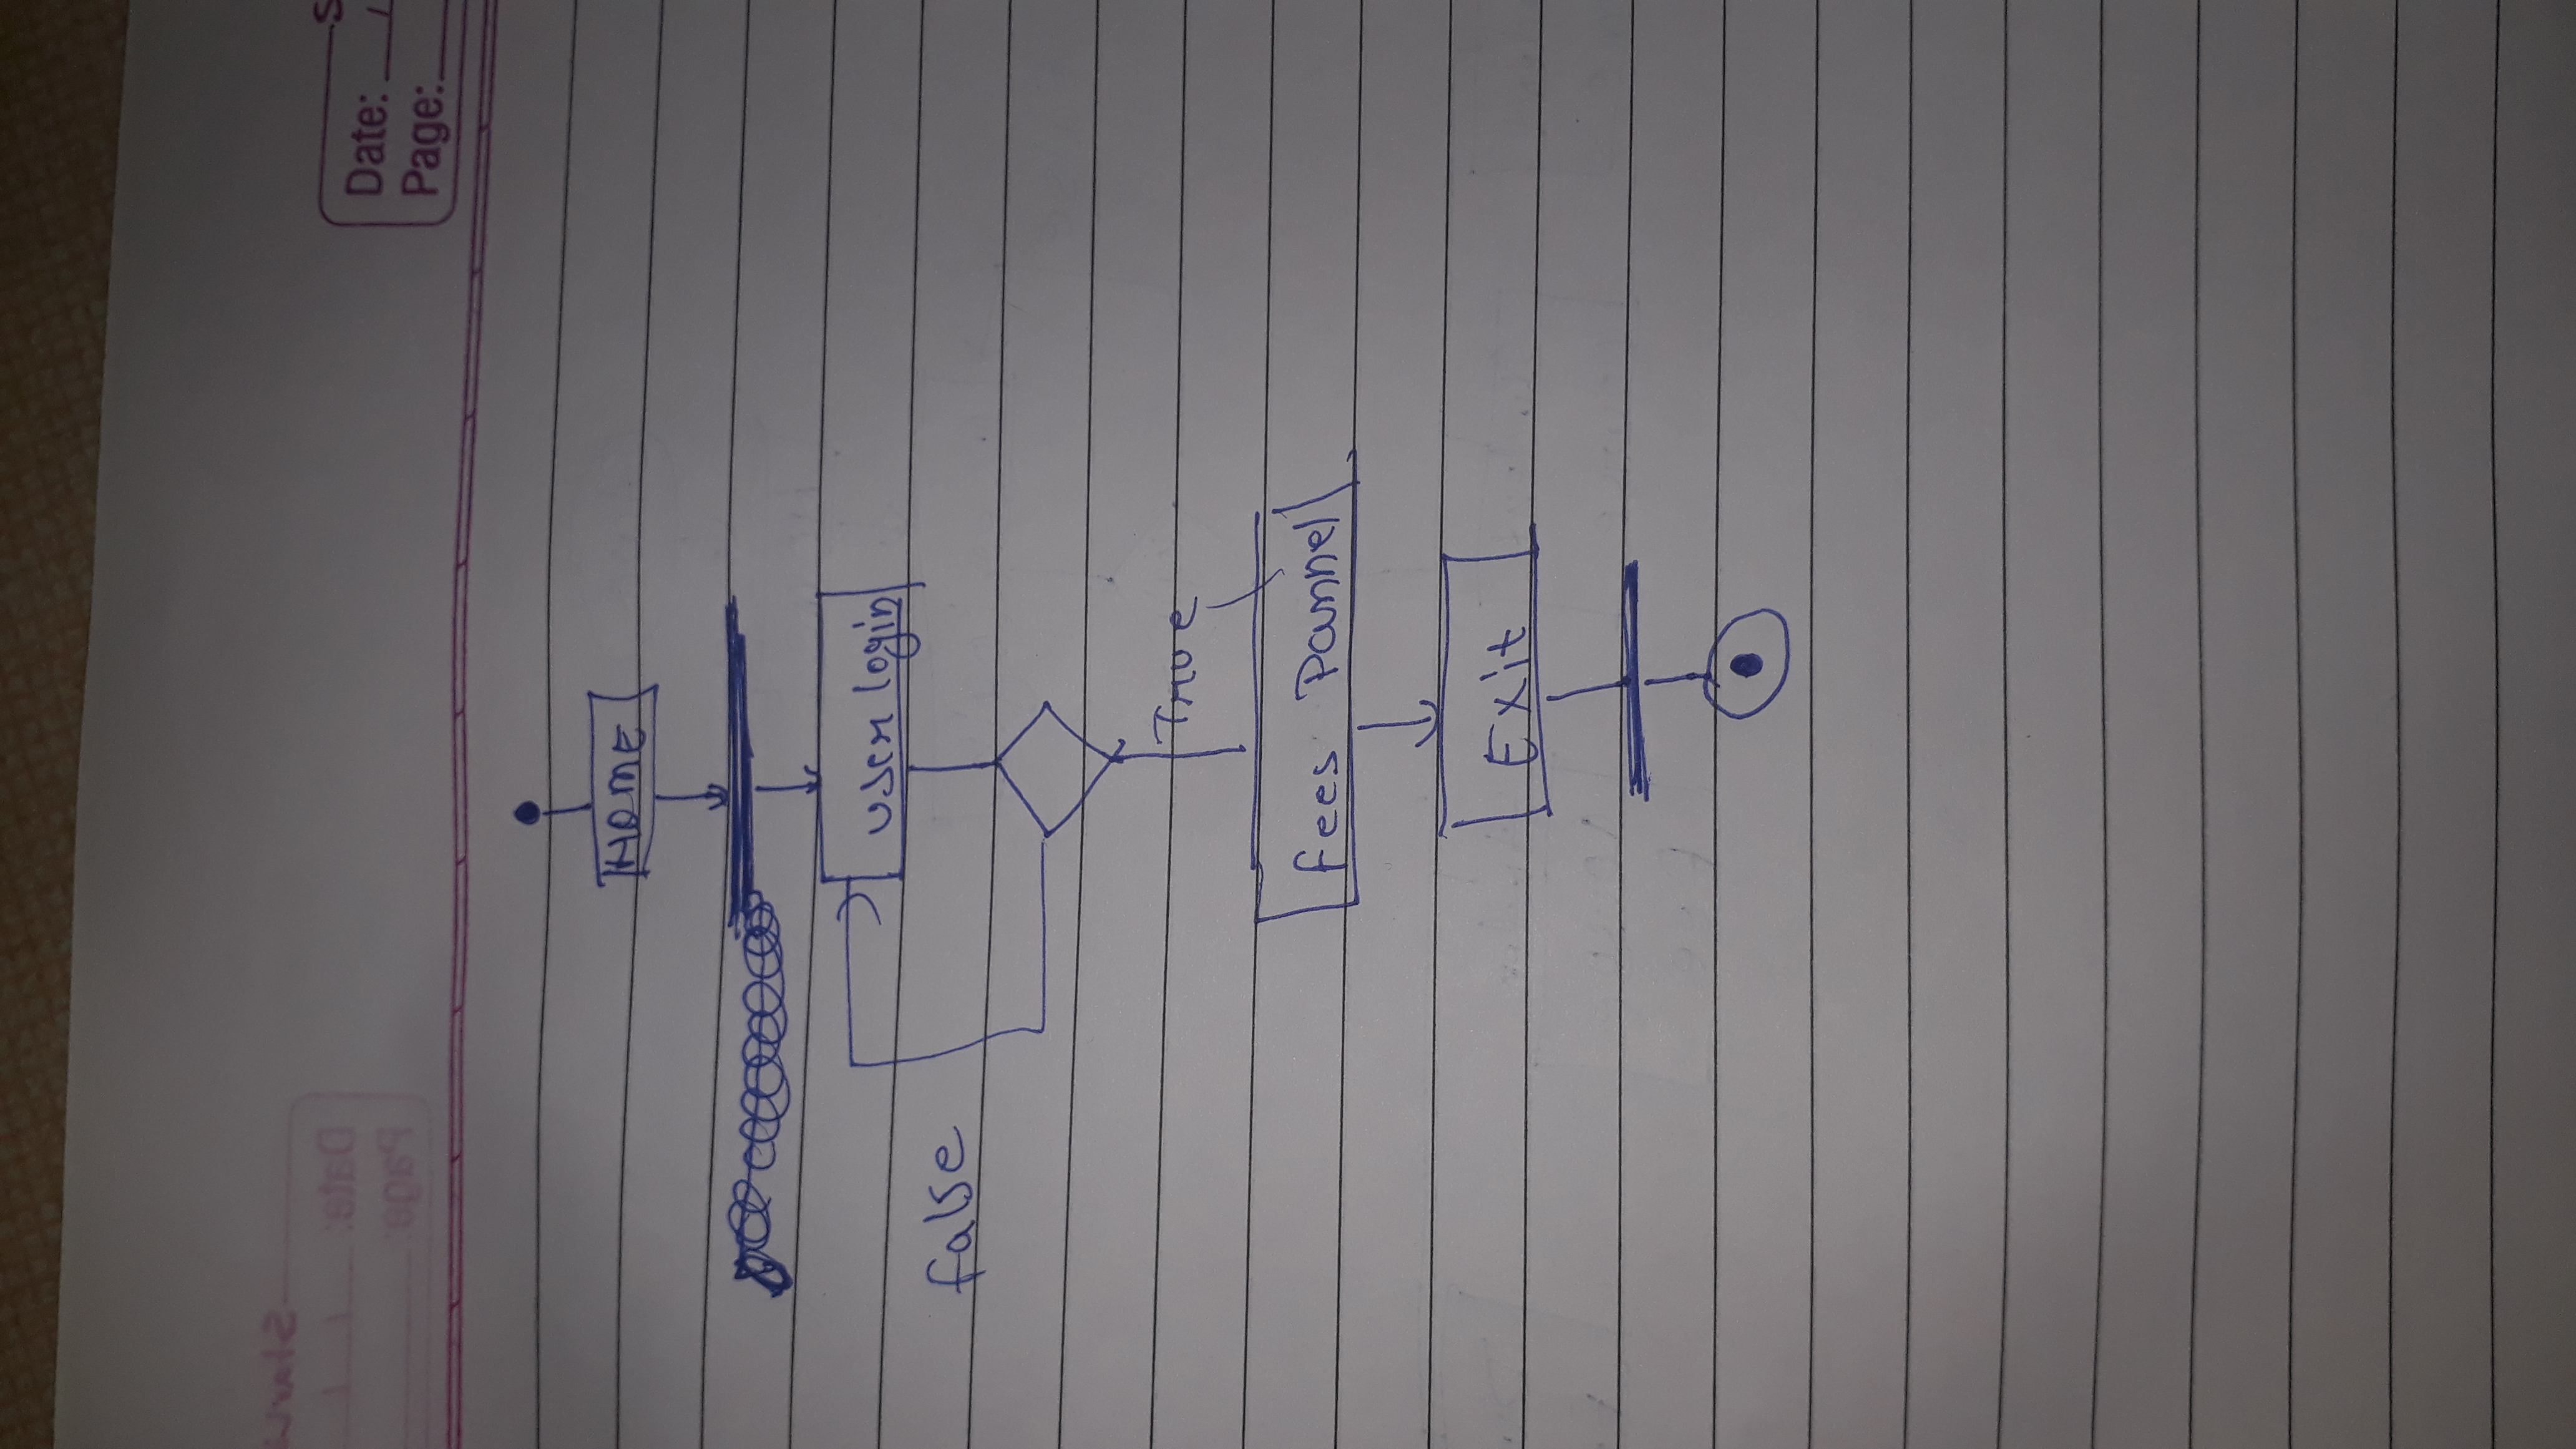 Date:
Page:
HOME
user login
false
True
fees Pannel
Exit